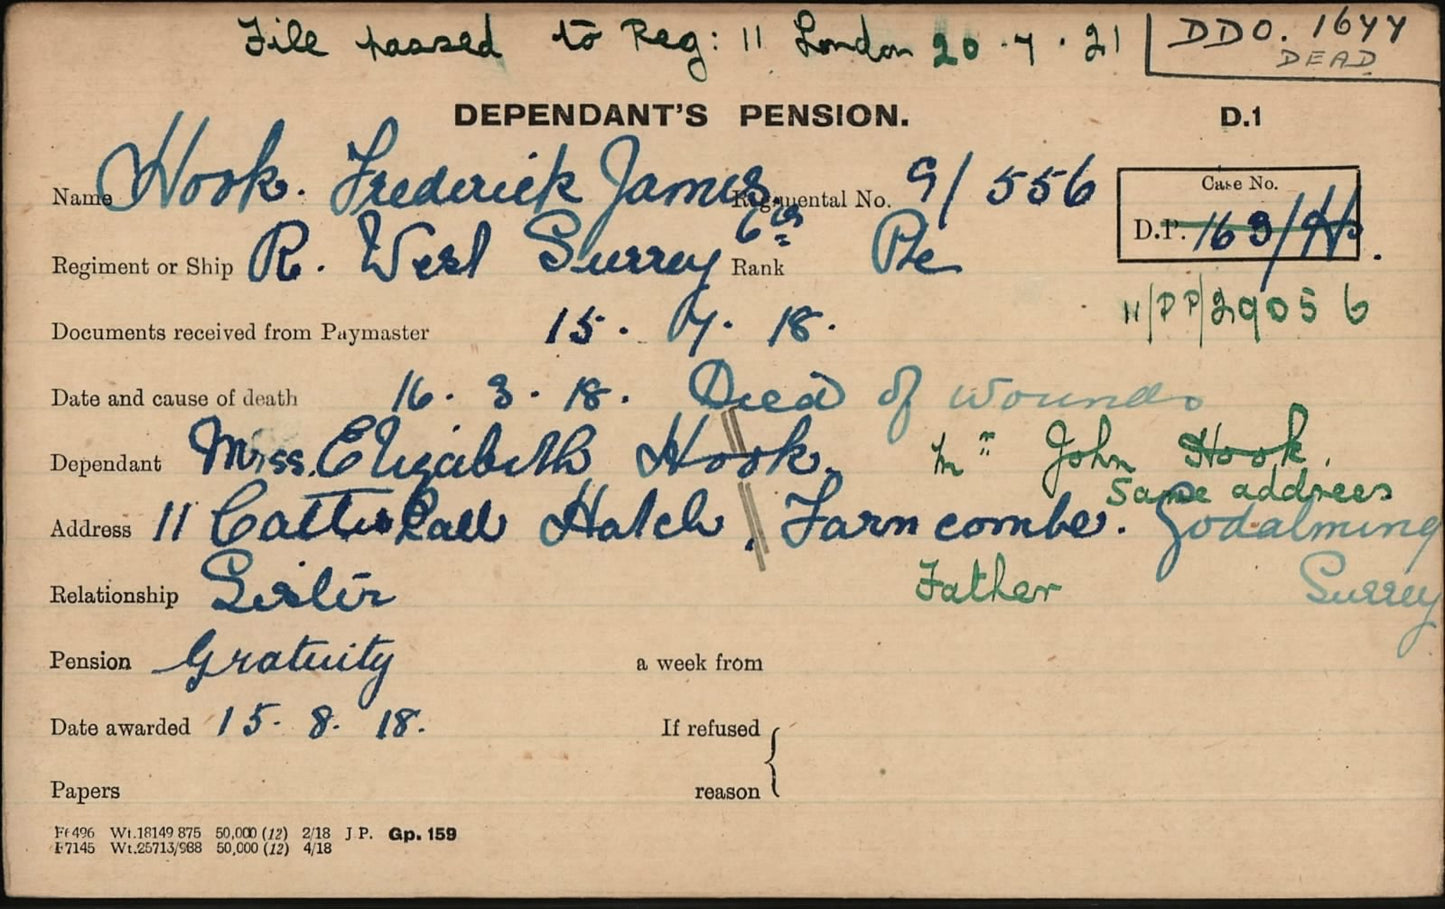 File passed to Reg: 11 London 20.7.21
DDO. 1644
DEAD
DEPENDANT'S PENSION.
D.1
Name Hook. Frederick James. Regimental No. G/556
Case No.
D.P. 163/H.
Regiment or Ship R. West Surrey 6th Rank Pte
11/DP/29056
Documents received from Paymaster 15. 7. 18.
Date and cause of death 16. 3. 18. Died of wounds
Dependant Miss. Elizabeth Hook. Mr John Hook.
Same address
Address 11 Hatch, Farncombe. Godalming
Surrey
Relationship Sister Father
Pension Gratuity a week from
Date awarded 15. 8. 18. If refused
Papers reason
F6496 Wt.18149 875 50,000 (12) 2/18 J P. Gp. 159
F7145 Wt.25713/988 50,000 (12) 4/18